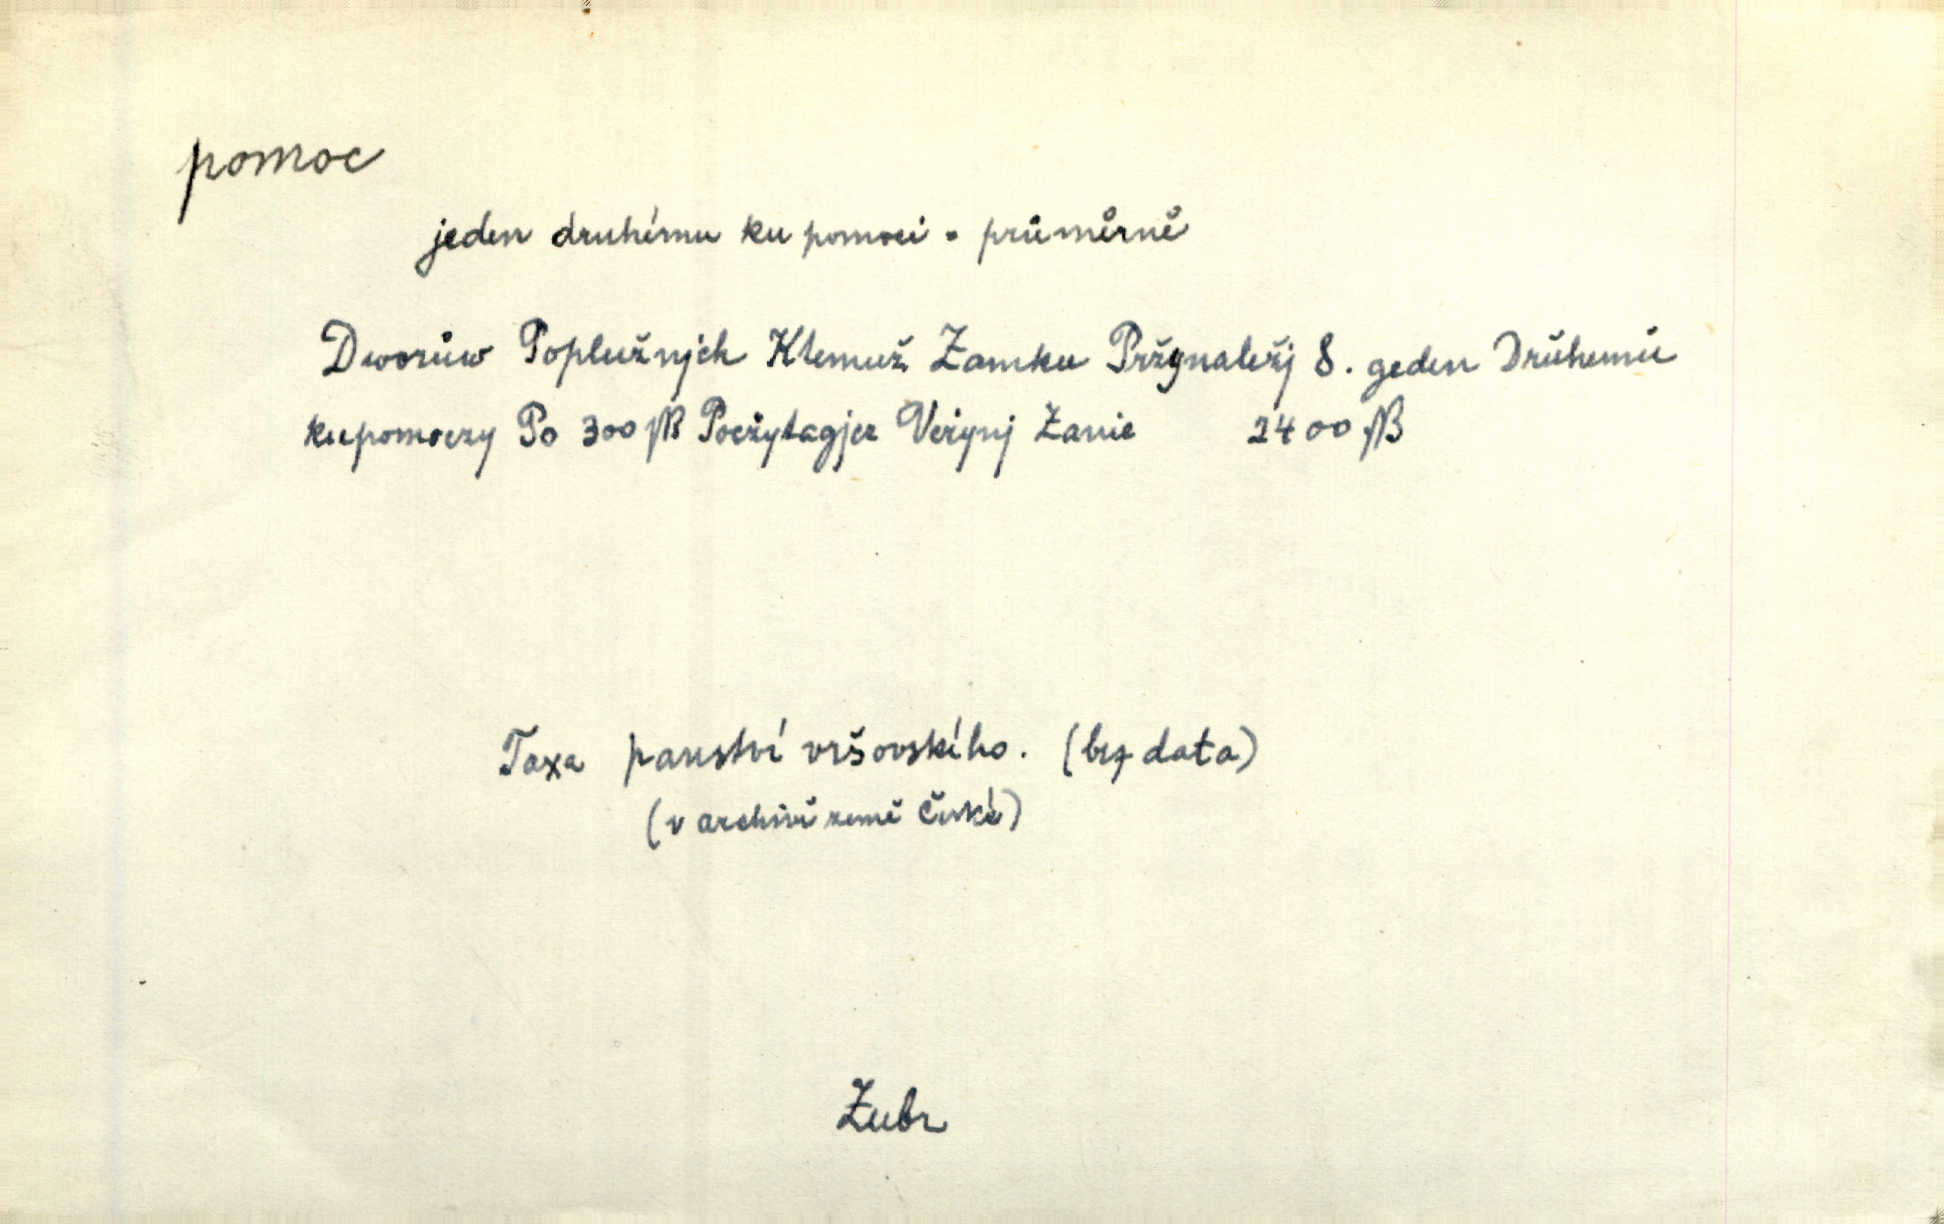 pomoc
jeden druhému ku pomoci = průměrně
Dworůw Poplužnjch Ktemuž Zamku Pržynaležj 8. geden Druhemu
kupomoczy Po 300 ſß Poczytagjcz Včinj Zanie 2400 ſß
Taxa panství vršovského. (bez data)
(v archivě země České)
Zubr